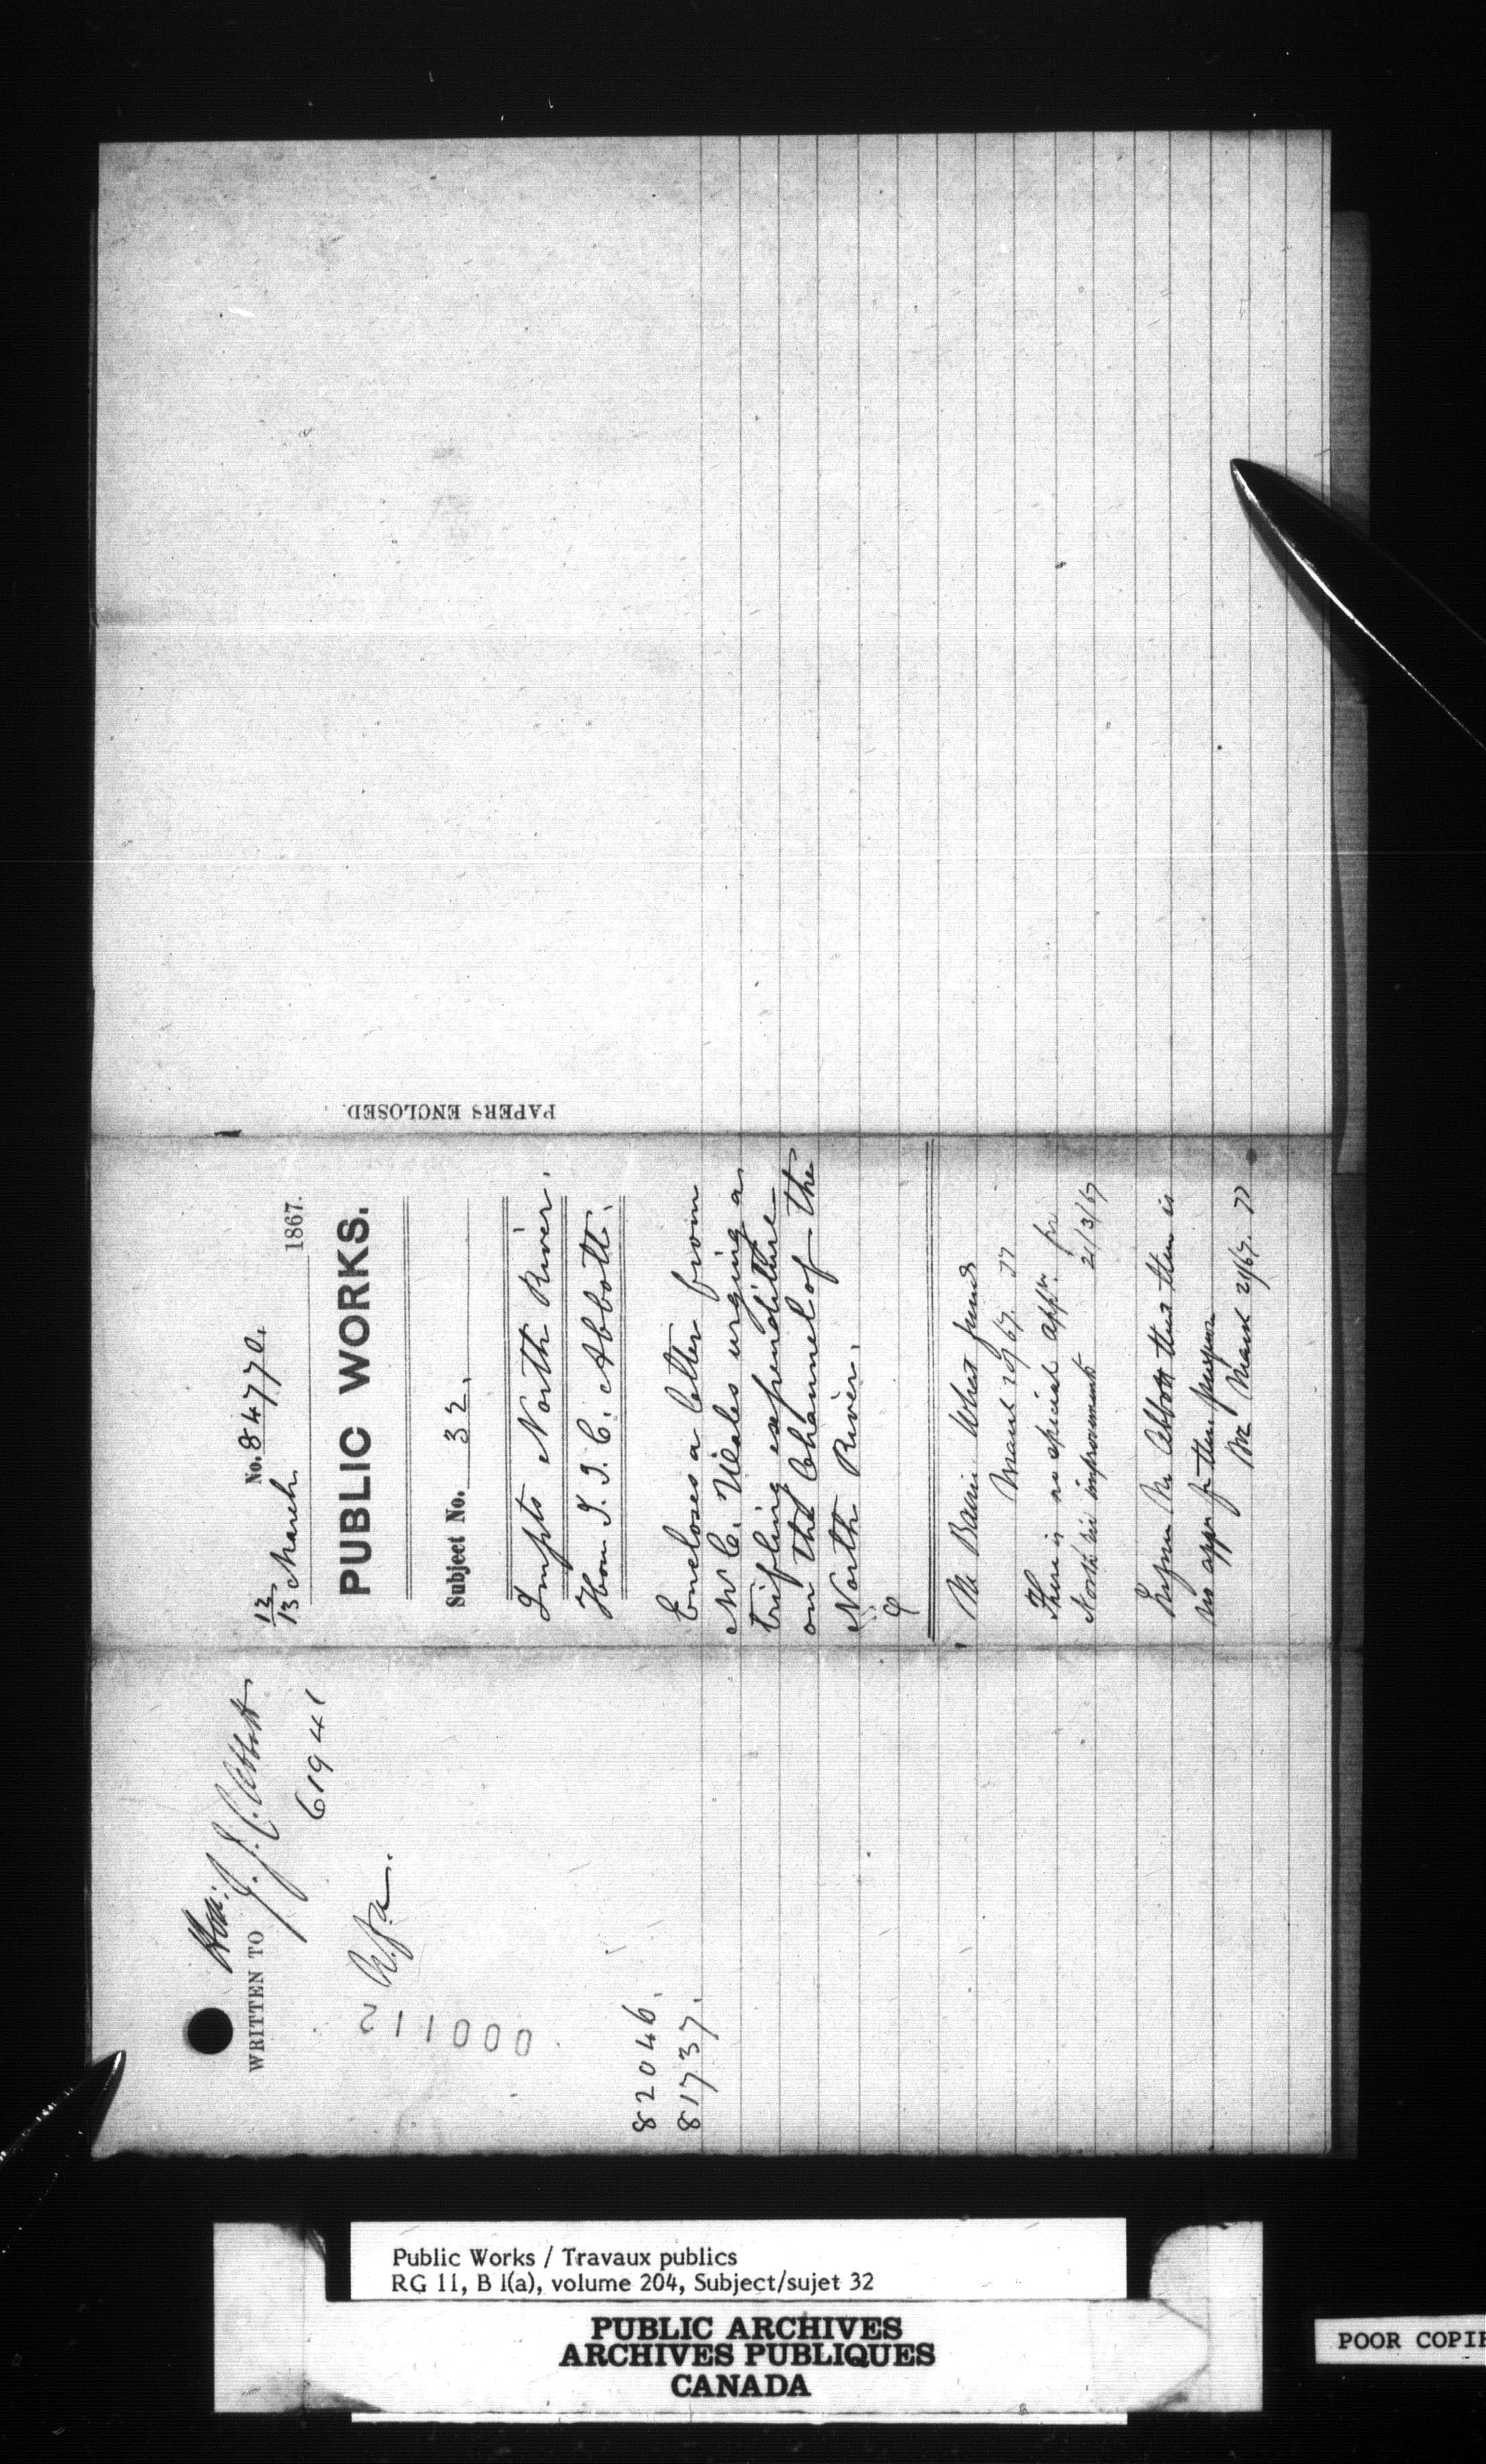 No. 84770.
12
13 March 1867.
PUBLIC WORKS.
Subject No. 32.
Impts North River.
Hon J. J. C. Abbott.
Encloses a letter from
urging a
trifling expenditure
on the Channel of the
North River.
Mr Bain What funds
March 20/67.
There is no special appn. for
North riv improvements 21/3/67
Inform Mr Abbott that there is
no appn for these purposes
March 21/67.
PAPERS ENCLOSED.
WRITTEN TO Hon: J. J. C. Abbott
61941
211000
82046.
81737.
Public Works / Travaux publics
RG 11, B 1(a), volume 204, Subject/sujet 32
PUBLIC ARCHIVES
ARCHIVES PUBLIQUES
CANADA
POOR COPIE